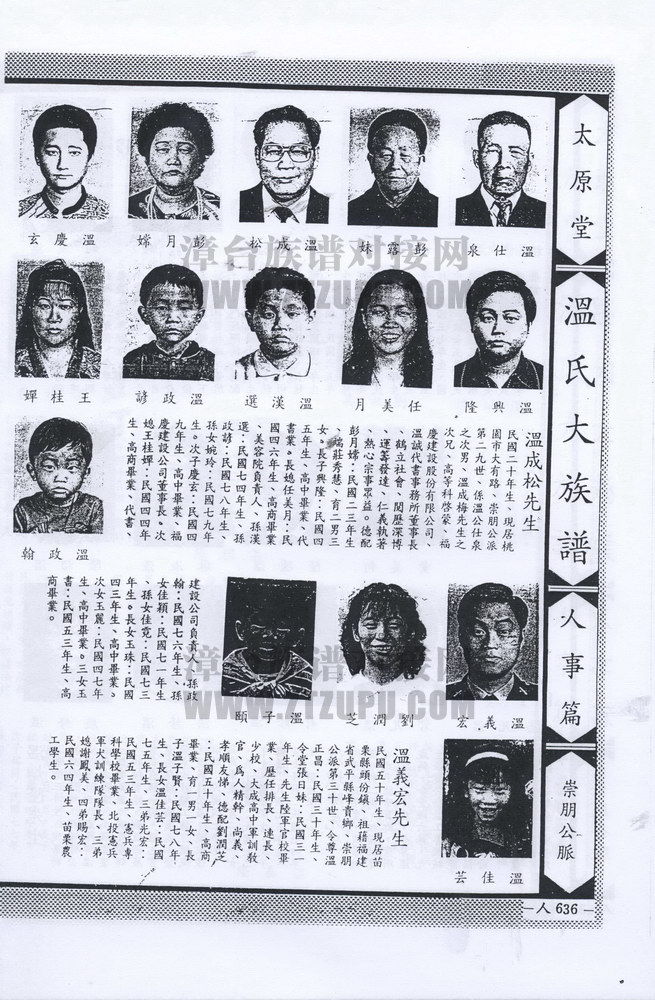 太原堂
溫氏大族譜
人事篇
崇朋公脈
人636
溫仕泉
彭露妹
溫成松
彭月嫦
溫慶玄
溫興隆
任美月
溫漢選
溫政諺
王桂嬋
溫成松先生
民國二十年生、現居桃
園市大有路、崇朋公派
第二九世、係溫公仕泉
之次男、溫成梅先生之
次兄、高等科啓蒙、福
慶建設股份有限公司、
溫誠代書事務所董事長
、鶴立社會、閱歷深博
、運籌發達、仁義執著
、熱心宗事眾益。德配
彭月嫦：民國二三年生
、端莊秀慧、育二男三
女。長子興隆：民國四
五年生、高中畢業、代
書業。長媳任美月：民
國四六年生、高商畢業
、美容院負責人、孫漢
選：民國七四年生、孫
政諺：民國七八年生、
孫女婉玲：民國七九年
生。次子慶玄：民國四
九年生、高中畢業、福
慶建設公司董事長。次
媳王桂嬋：民國四四年
生、高商畢業、代書、
溫政翰
建設公司負責人、孫政
翰：民國七六年生、孫
女佳穎：民國七一年生
、孫女佳霓：民國七三
年生。長女玉珠：民國
四三年生、高中畢業。
次女玉麗：民國四七年
生、高中畢業。三女玉
書：民國五三年生、高
商畢業。
溫義宏
劉潤芝
溫子頤
溫佳芸
溫義宏先生
民國五十年生、現居苗
栗縣頭份鎮、祖籍福建
省武平縣峰貴鄉、崇朋
公派第三十世、令尊溫
正昌：民國三十年生、
令堂張日妹：民國三一
年生、先生陸軍官校畢
業、歷任排長、連長、
少校、大成高中軍訓教
官、爲人精幹、尚義、
孝順友悌、德配劉潤芝
：民國五十年生、高商
畢業、育一男一女、長
子溫子賢：民國七八年
生、長女溫佳芸：民國
七五年生、三弟光宏：
民國五三年生、憲兵專
科學校畢業、北投憲兵
軍犬訓練隊隊長、三弟
媳謝鳳美、四弟賜宏：
民國六四年生、苗栗農
工學生。
漳台族谱对接网
WWW.ZTZUPU.COM
漳台族谱对接网
WWW.ZTZUPU.COM